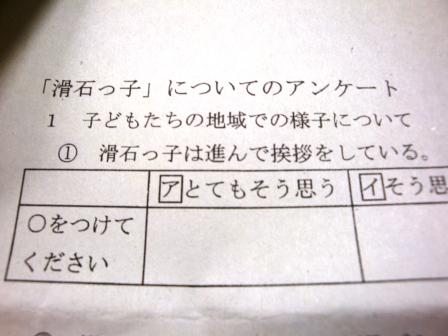 「滑石っ子」についてのアンケート
1 子どもたちの地域での様子について
① 滑石っ子は進んで挨拶をしている。
アとてもそう思う イそう思
○をつけて
ください